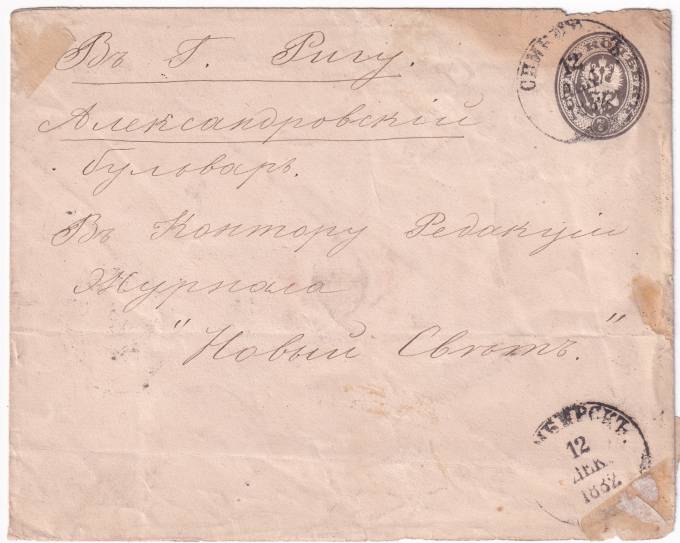 Въ Г. Ригу.
Александровскій
бульваръ.
Въ Контору Редакціи
Журнала
"Новый Свѣтъ."
СИМБИР
12
ДЕК
МБИРСКЪ.
12
ДЕК.
1882